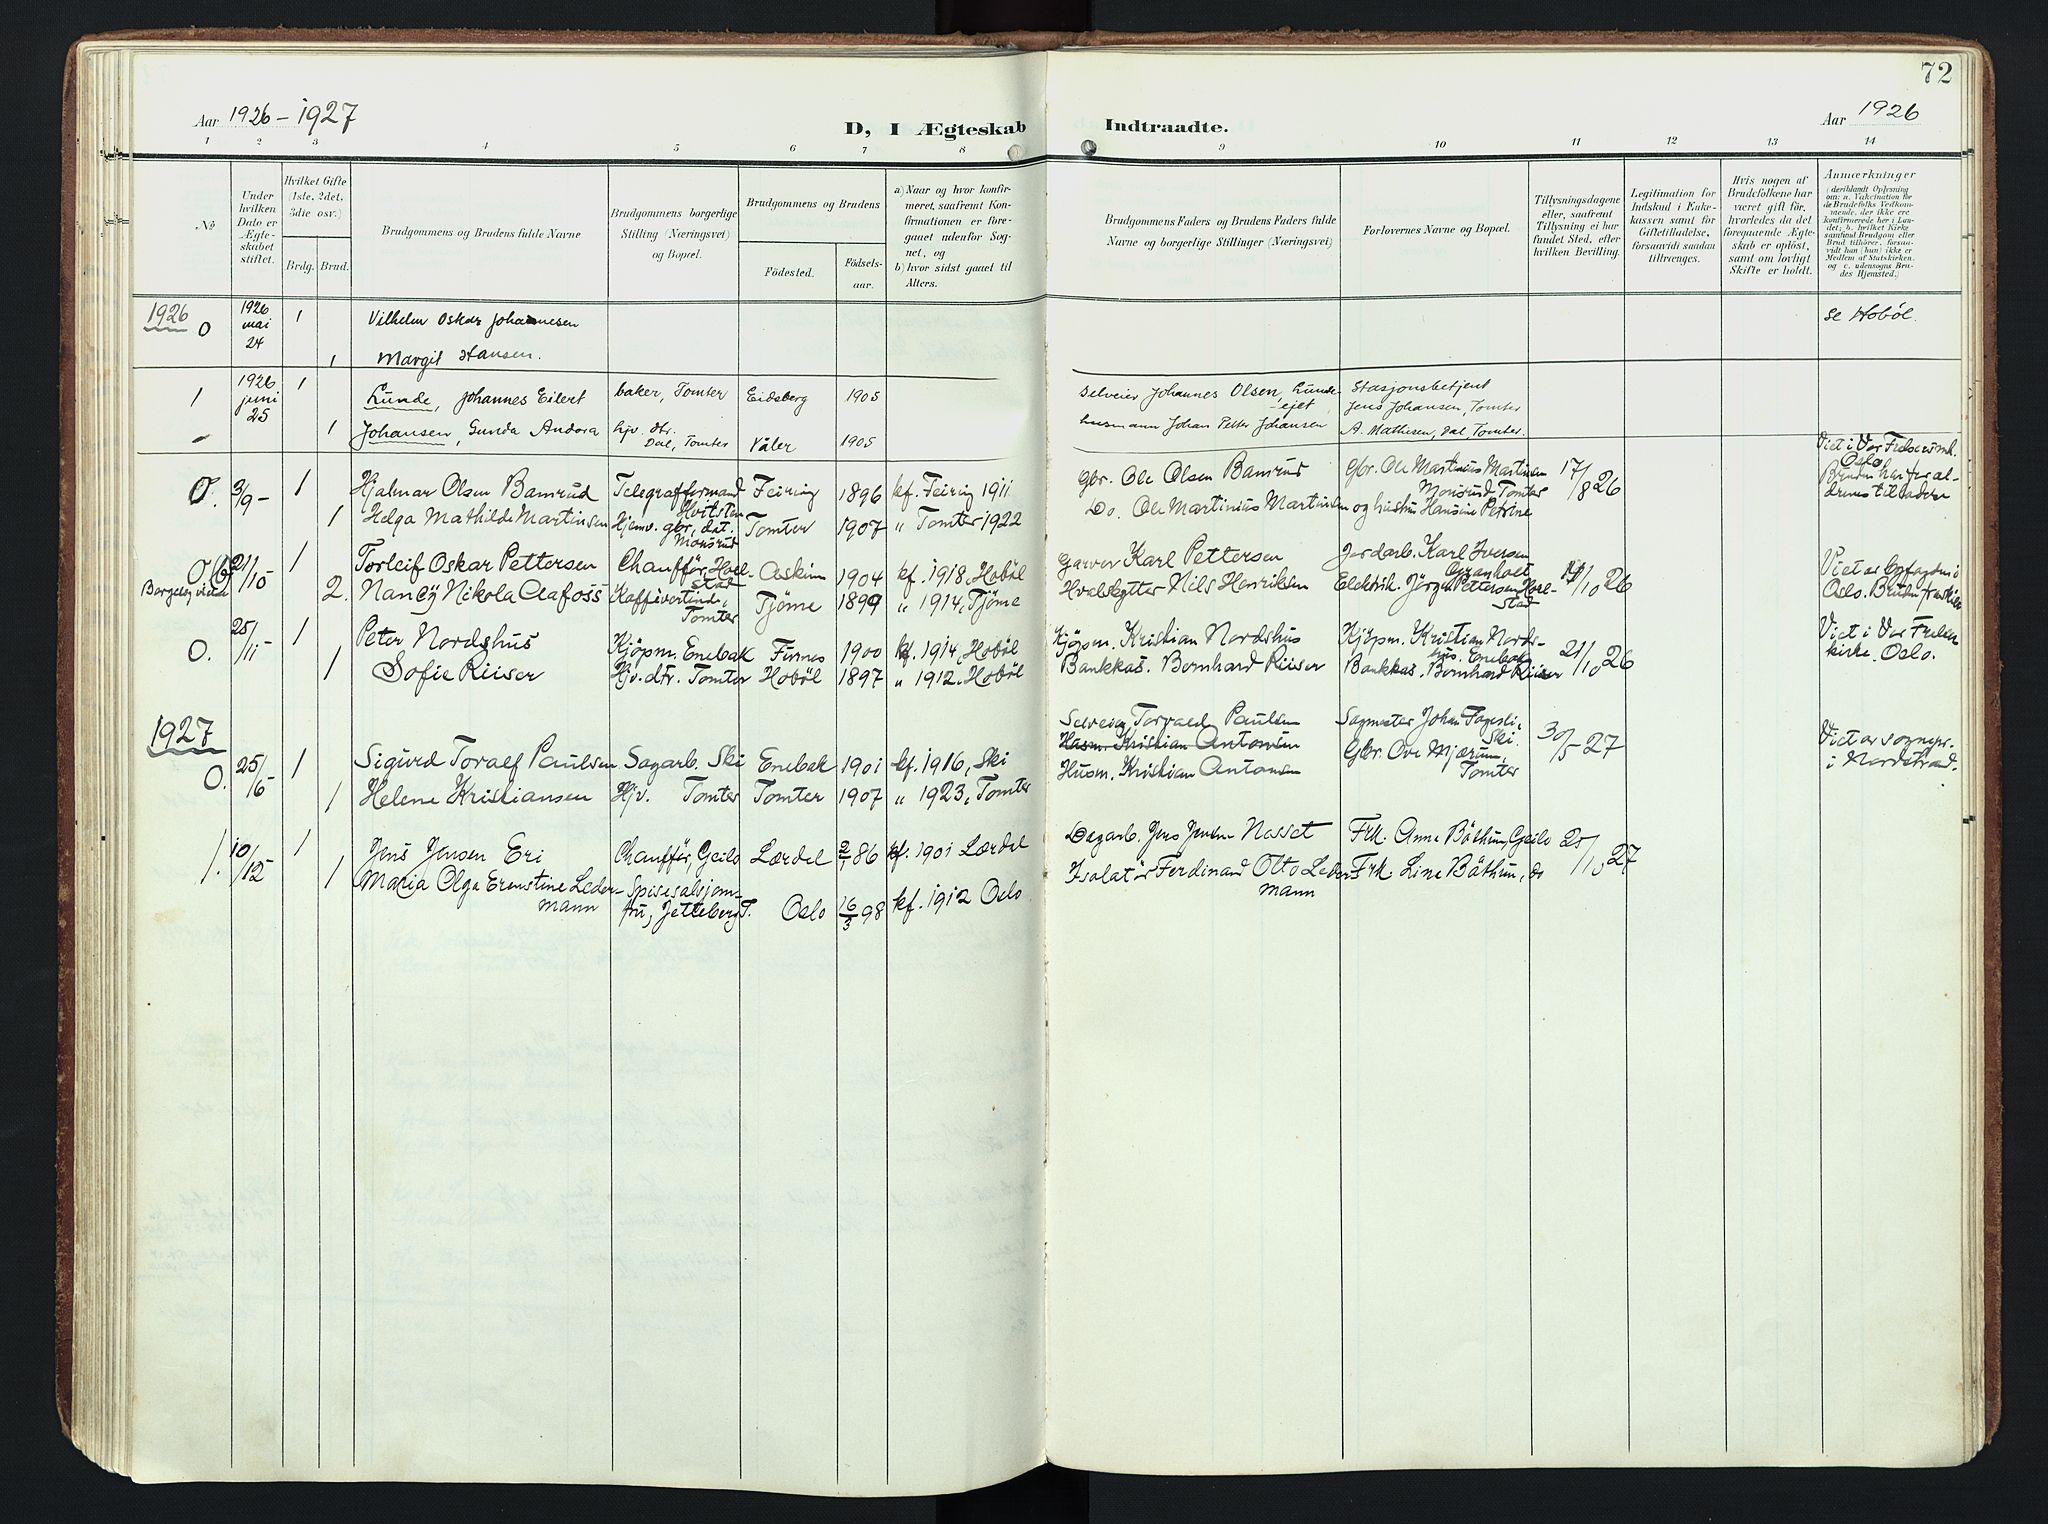 72
Aar 1926 – 1927
D, I Ægteskab
Indtraadte.
Aar 1926
1 2 3 4 5 6 7 8 9 10 11 12 13 14
No
Under hvilken Dato er Ægteskabet stiftet.
Hvilket Gifte (1ste, 2det, 3die osv.)
Brdg. Brud.
Brudgommens og Brudens fulde Navne
Brudgommens borgerlige Stilling (Næringsvei) og Bopæl.
Brudgommens og Brudens
Fødested. Fødsels-aar.
a) Naar og hvor konfirmeret, saafremt Konfirmationen er foregaaet udenfor Sognet, og
b) hvor sidst gaaet til Alters.
Brudgommens Faders og Brudens Faders fulde Navne og borgerlige Stillinger (Næringsvei)
Forlovernes Navne og Bopæl.
Tillysningsdagene eller, saafremt Tillysning ei har fundet Sted, efter hvilken Bevilling.
Legitimation for Indskud i Enkekassen samt for Giftetilladelse, forsaavidt saadan tiltrænges.
Hvis nogen af Brudefolkene har været gift før, hvorledes da det foregaaende Ægteskab er opløst, samt om lovligt Skifte er holdt.
Anmærkninger (deriblandt Oplysning om: a. Vakcination for de Brudefolks Vedkommende, der ikke ere konfirmerede her i Landet; b. hvilket Kirkesamfund Brudgom eller Brud tilhører, forsaavidt han (hun) ikke er Medlem af Statskirken, og c. udensogns Brudes Hjemsted.)
1926 0 1926 mai 24 1 Vilhelm Oskar Johannesen se Hobøl.
1 Margit Hansen.
1 1926 juni 25 1 Lunde, Johannes Eilert baker, Tomter Eidsberg 1905 selveier Johannes Olsen, Lunde-ejet Stasjonsbetjent Jens Johansen, Tomter
1 Johansen, Gunda Andora hjv. dtr. Dal, Tomter Våler 1905 husmann Johan Petter Johansen A. Mathisen, Dal, Tomter.
0. 3/9 – 1 Hjalmar Olsen Bamrud Telegrafformand Hvitsten Feiring 1896 kf. Feiring 1911 Gbr. Ole Olsen Bamrud Gbr. Ole Martinius Martinsen Monsrud, Tomter 17/8 26 Viet i Vor Frelsers k. Oslo.
1 Helga Mathilde Martinsen Hjemv. gbr. dat. Monsrud Tomter 1907 " Tomter 1922 Do. Ole Martinius Martinsen og hustru Hansine Petrine
0 Borgelig viede 21/10 1 Torleif Oskar Pettersen Chauffør, Hoelstad Askim 1904 kf. 1918, Hobøl Garver Karl Pettersen Jordarb. Karl Iversen Granholt 10 26 Viet av byfogden i Oslo.
2. Nancy Nikola Aafoss Kaffivertinde, Tomter Tjøme 1899 " 1914, Tjøme Hvalskytter Nils Henriksen Elektrik. Jørgen Pettersen Hoelstad
0. 25/11 1 Peter Nordshus Kjøpm. Enebak Furnes 1900 kf. 1914, Hobøl Kjøpm. Kristian Nordshus Kjøpm. Kristian Nordshus. Enebak 21/10 26 Viet i Vor Frelserkirke, Oslo.
1 Sofie Riiser Hjv. dtr. Tomter Hobøl 1897 " 1912, Hobøl Bankkas. Bernhard Riiser Bankkas. Bernhard Riiser
1927
0. 25/6 1 Sigurd Toralf Paulsen Sagarb. Ski Enebak 1901 kf. 1916, Ski Selveier Torvald Paulsen Sagmester Johan Fagerli, Ski. 30/5 27 Viet av sognepr. i Nordstrand.
Husm. Kristian Antonsen
1 Helene Kristiansen Hjv. Tomter Tomter 1907 " 1923, Tomter Husm. Kristian Antonsen Gbr. Ove Mjærum, Tomter
1. 10/12 1 Jens Jensen Eri Chauffør, Geilo Lærdal 2/1 86 kf. 1901 Lærdal Dagarb. Jens Jensen Nesset Frk. Anna Båthun, Geilo 25/10 27
1 Maria Olga Ernestine Ledermann Spisesalsjomfru, Jelleberg T. Oslo 16/3 98 kf. 1912 Oslo Isolatør Ferdinand Otto Ledermann Frk. Line Båthun, do